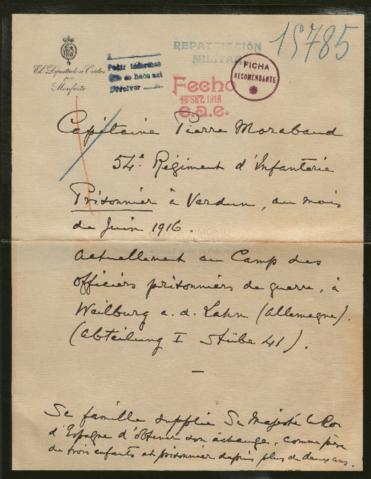 REPATRIACIÓN
MILITAR
15785
El Diputado a Cortes
por
Monforte
FICHA
RECOMENDANTE
Fecho
18 SEZ. 1918
e.a.e.
Capitaine Pierre Morabaud
54e Régiment d'Infanterie
Prisonnier à Verdun, au mois
de Juin 1916.
Actuellement au Camp des
officiers prisonniers de guerre, à
Weilburg a.d. Lahn (Allemagne).
(Abteilung I Stübe 41).
—
Sa famille supplie Sa Majesté le Roi
d'Espagne d'obtenir son échange, comme père
de trois enfants et prisonnier depuis plus de deux ans.